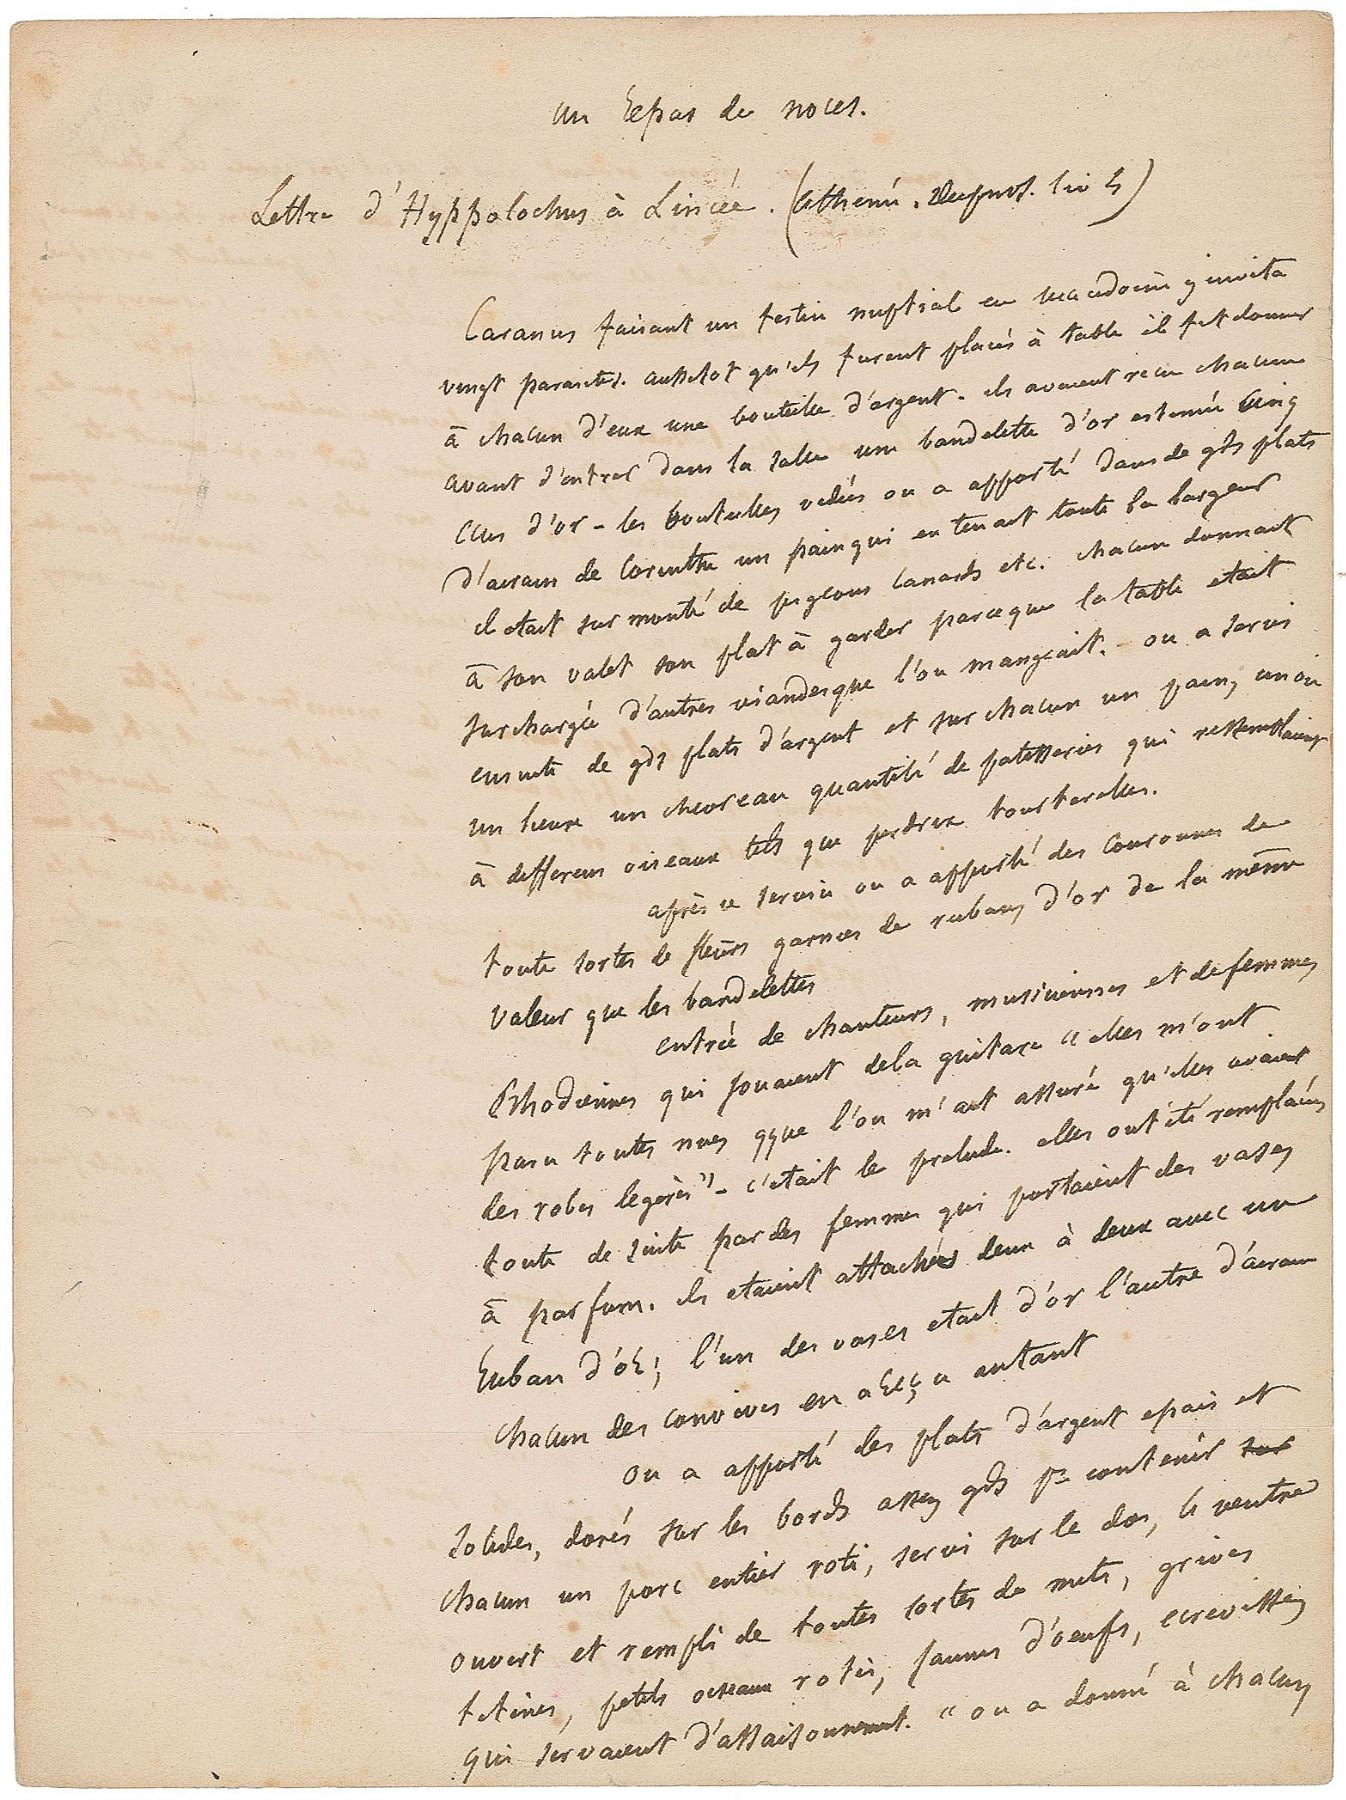 un Repas de noces.
Lettre d'Hyppolochus à Lincée. (Athené. Deipnos. liv 4)
Caranus faisant un festin nuptial en macedoine y invita
vingt parasites. aussitot qu'ils furent placés à table il fit donner
à chacun d'eux une bouteille d'argent. ils avaient recu chacun
avant d'entrer dans la salle une bandelette d'or estimée cinq
ecus d'or - les bouteilles vidées on a apporté dans de gds plats
d'airain de Corinthe un pain qui en tenait toute la largeur
il etait surmonté de pigeons canards etc. chacun donnait
à son valet son plat à garder parceque la table etait
surchargée d'autres viandes que l'on mangeait. - on a servi
ensuite de gds plats d'argent et sur chacun un pain, un oie
un lievre un chevreau quantité de patisseries qui ressemblaient
à differens oiseaux tels que perdrix tourterelles.
après ce service on a apporté des couronnes de
toute sortes de fleurs garnies de rubans d'or de la même
valeur que les bandelettes
entrée de chanteurs, musiciennes et de femmes
Rhodiennes qui jouaient de la guitare "elles m'ont
paru toutes nues qque l'on m'ait assuré qu'elles avaient
des robes legères" - c'etait le prelude. elles ont été remplacées
toute de suite par des femmes qui portaient des vases
à parfum. ils etaient attachés deux à deux avec un
Ruban d'or; l'un des vases etait d'or l'autre d'airain
chacun des convives en a reçu autant
on a apporté des plats d'argent epais et
solides, dorés sur les bords assez gds pr contenir sur
chacun un porc entier roti, servi sur le dos, le ventre
ouvert et rempli de toutes sortes de mets, grives
tetines, petits oiseaux rotis, jaunes d'oeufs, ecrevisses
qui servaient d'assaisonnement. "on a donné à chacun